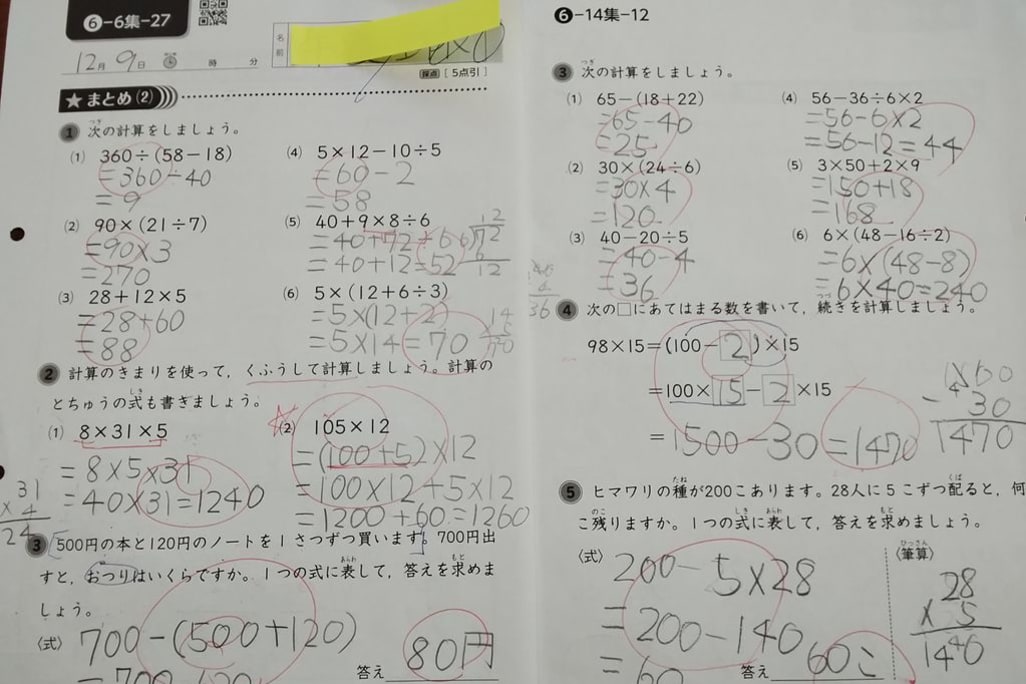 6-6集-27
12月9日 時 分
名前
採点 [5点引]
★まとめ(2)
1 次の計算をしましょう。
(1) 360÷(58-18)
=360÷40
=9
(2) 90×(21÷7)
=90×3
=270
(3) 28+12×5
=28+60
=88
(4) 5×12-10÷5
=60-2
=58
(5) 40+9×8÷6
=40+72÷6
=40+12=52
12
6 72
6
12
(6) 5×(12+6÷3)
=5×(12+2)
=5×14=70
14
×5
70
2 計算のきまりを使って,くふうして計算しましょう。計算の
とちゅうの式も書きましょう。
(1) 8×31×5
=8×5×31
=40×31=1240
31
×4
24
(2) 105×12
=(100+5)×12
=100×12+5×12
=1200+60=1260
3 500円の本と120円のノートを1さつずつ買います。700円出
すと,おつりはいくらですか。1つの式に表して,答えを求めま
しょう。
(式) 700-(500+120)
答え 80円
6-14集-12
3 次の計算をしましょう。
(1) 65-(18+22)
=65-40
=25
(2) 30×(24÷6)
=30×4
=120
(3) 40-20÷5
=40-4
=36
(4) 56-36÷6×2
=56-6×2
=56-12=44
(5) 3×50+2×9
=150+18
=168
(6) 6×(48-16÷2)
=6×(48-8)
=6×40=240
4 次の□にあてはまる数を書いて,続きを計算しましょう。
98×15=(100-2)×15
=100×15-2×15
=1500-30=1470
1500
-30
1470
5 ヒマワリの種が200こあります。28人に5こずつ配ると,何
こ残りますか。1つの式に表して,答えを求めましょう。
(式) 200-5×28
=200-140
=60
答え 60こ
(筆算)
28
×5
140